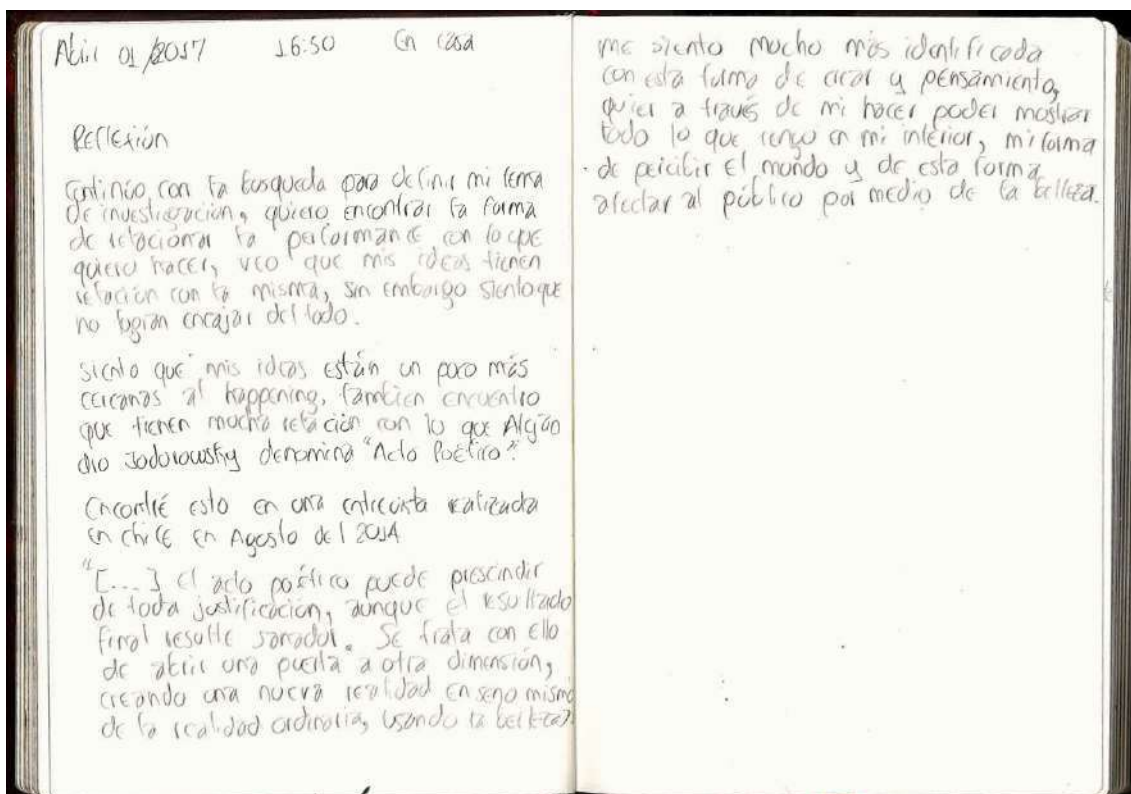 Abril 01/2017 16:50 En casa
Reflexión
Continúo con la busqueda para definir mi tema
de investigación, quiero encontrar la forma
de relacionar la performance, con lo que
quiero hacer, veo que mis ideas tienen
relación con la misma, sin embargo siento que
no logran encajar del todo.
Siento que mis ideas están un poco más
cercanas al happening, tambien encuentro
que tienen mucha relación con lo que Alejan
dro Jodorowsky denomina "Acto Poético".
Encontré esto en una entrevista realizada
en chile en Agosto del 2014
"[....] el acto poético puede prescindir
de toda justificación, aunque el resultado
final resulte sanador. Se trata con ello
de abrir una puerta a otra dimensión,
creando una nueva realidad en seno mismo
de la realidad ordinaria, usando la belleza".
me siento mucho más identificada
con esta forma de crear y pensamiento,
quier a través de mi hacer poder mostrar
todo lo que tengo en mi interior, mi forma
de percibir el mundo y de esta forma
afectar al público por medio de la belleza.